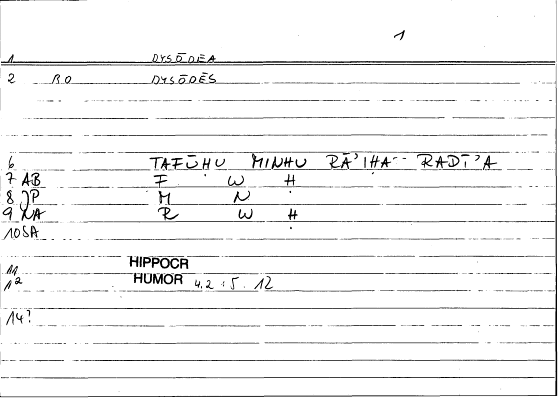 1
1 DYSŌDEA
2 BO DYSŌDĒS
6 TAFŪHU MINHU RĀ'IHA-- RADĪ'A
7 AB F W Ḥ
8 JP M N
9 NA R W Ḥ
10 SA
11 HIPPOCR
12 HUMOR 4.2 : 5. 12
14?